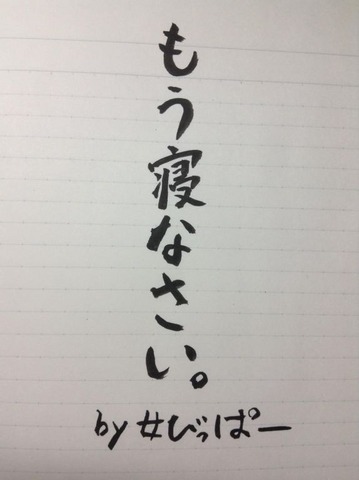 もう寝なさい。
by #びっぱー